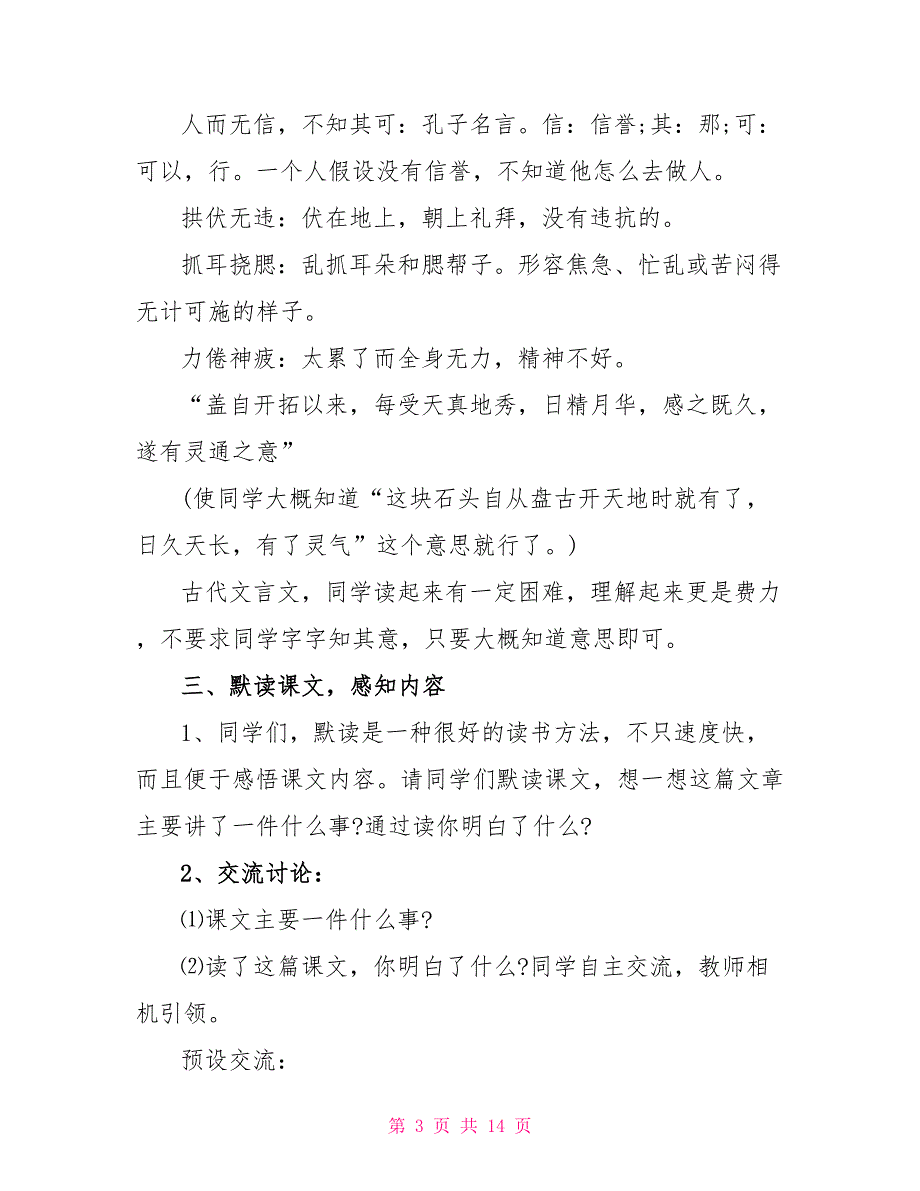 人而无信，不知其可：孔子名言。信：信誉;其：那;可：
可以，行。一个人假设没有信誉，不知道他怎么去做人。
拱伏无违：伏在地上，朝上礼拜，没有违抗的。
抓耳挠腮：乱抓耳朵和腮帮子。形容焦急、忙乱或苦闷得
无计可施的样子。
力倦神疲：太累了而全身无力，精神不好。
“盖自开拓以来，每受天真地秀，日精月华，感之既久，
遂有灵通之意”
(使同学大概知道“这块石头自从盘古开天地时就有了，
日久天长，有了灵气”这个意思就行了。)
古代文言文，同学读起来有一定困难，理解起来更是费力
，不要求同学字字知其意，只要大概知道意思即可。
三、默读课文，感知内容
1、同学们，默读是一种很好的读书方法，不只速度快，
而且便于感悟课文内容。请同学们默读课文，想一想这篇文章
主要讲了一件什么事?通过读你明白了什么?
2、交流讨论：
⑴课文主要一件什么事?
⑵读了这篇课文，你明白了什么?同学自主交流，教师相
机引领。
预设交流：
第 3 页 共 14 页